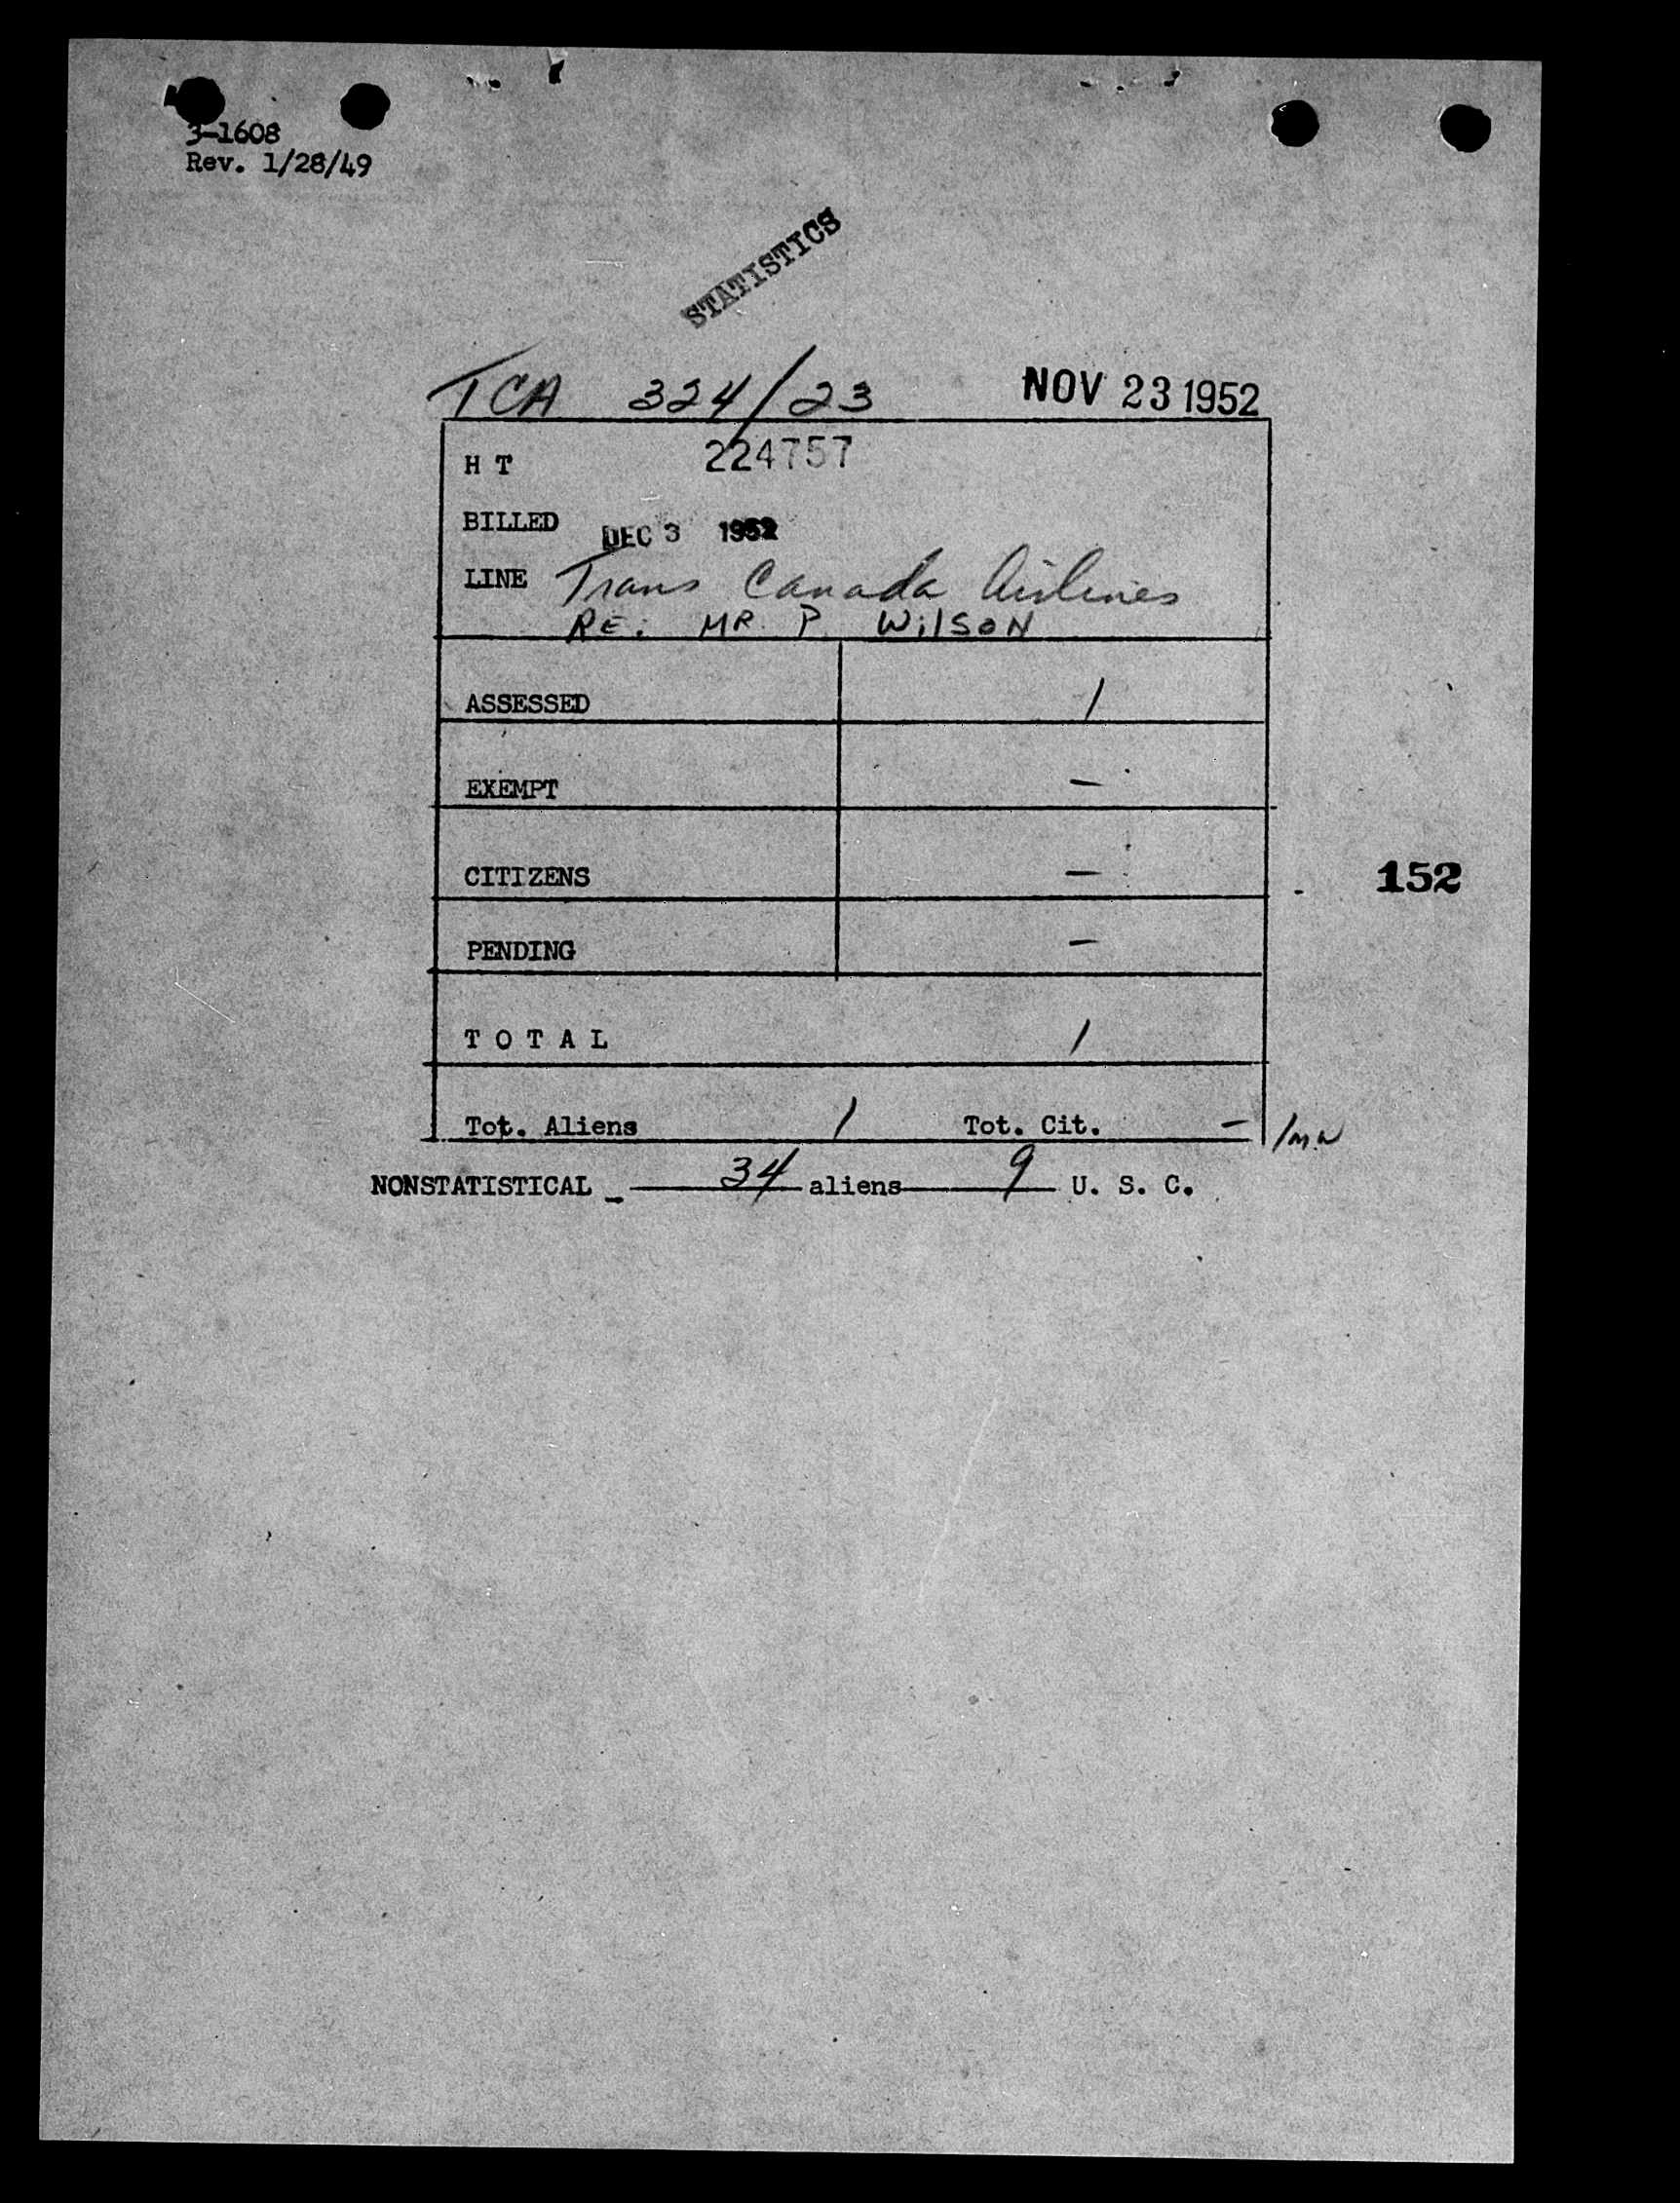 3-1608
Rev. 1/28/49
STATISTICS
TCA 324/23 NOV 23 1952
H T 224757
BILLED DEC 3 1952
LINE Trans Canada Airlines
RE: MR. P. WilSON
ASSESSED 1
EXEMPT —
CITIZENS —
152
PENDING —
T O T A L 1
Tot. Aliens 1 Tot. Cit. —
NONSTATISTICAL - 34 aliens 9 U. S. C.